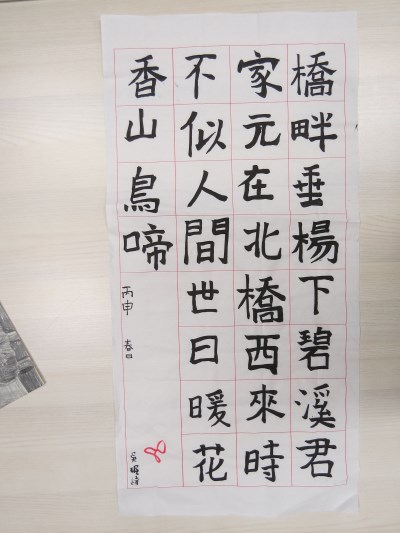 橋畔垂楊下碧溪君
家元在北橋西來時
不似人間世日暖花
香山鳥啼
丙申 春日